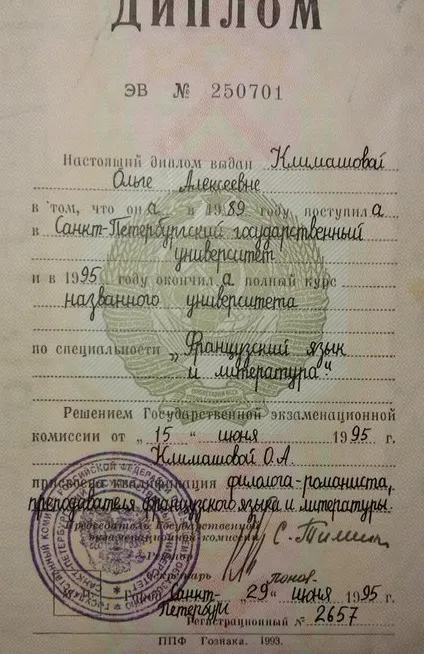 ДИПЛОМ
ЭВ № 250701
Настоящий диплом выдан Климашовой
Ольге Алексеевне
в том, что она в 1989 году поступила
в Санкт-Петербургский государственный
университет
и в 1995 году окончила полный курс
названного университета
по специальности „Французский язык
и литература".
Решением Государственной экзаменационной
комиссии от „15" июня 1995 г.
Климашовой О.А.
присвоена квалификация филолога-романиста,
преподавателя французского языка и литературы.
Председатель Государственной
экзаменационной комиссии
Ректор
Секретарь
Город Санкт-Петербург „29" июня 1995 г.
Регистрационный № 2657
ППФ Гознака. 1993.